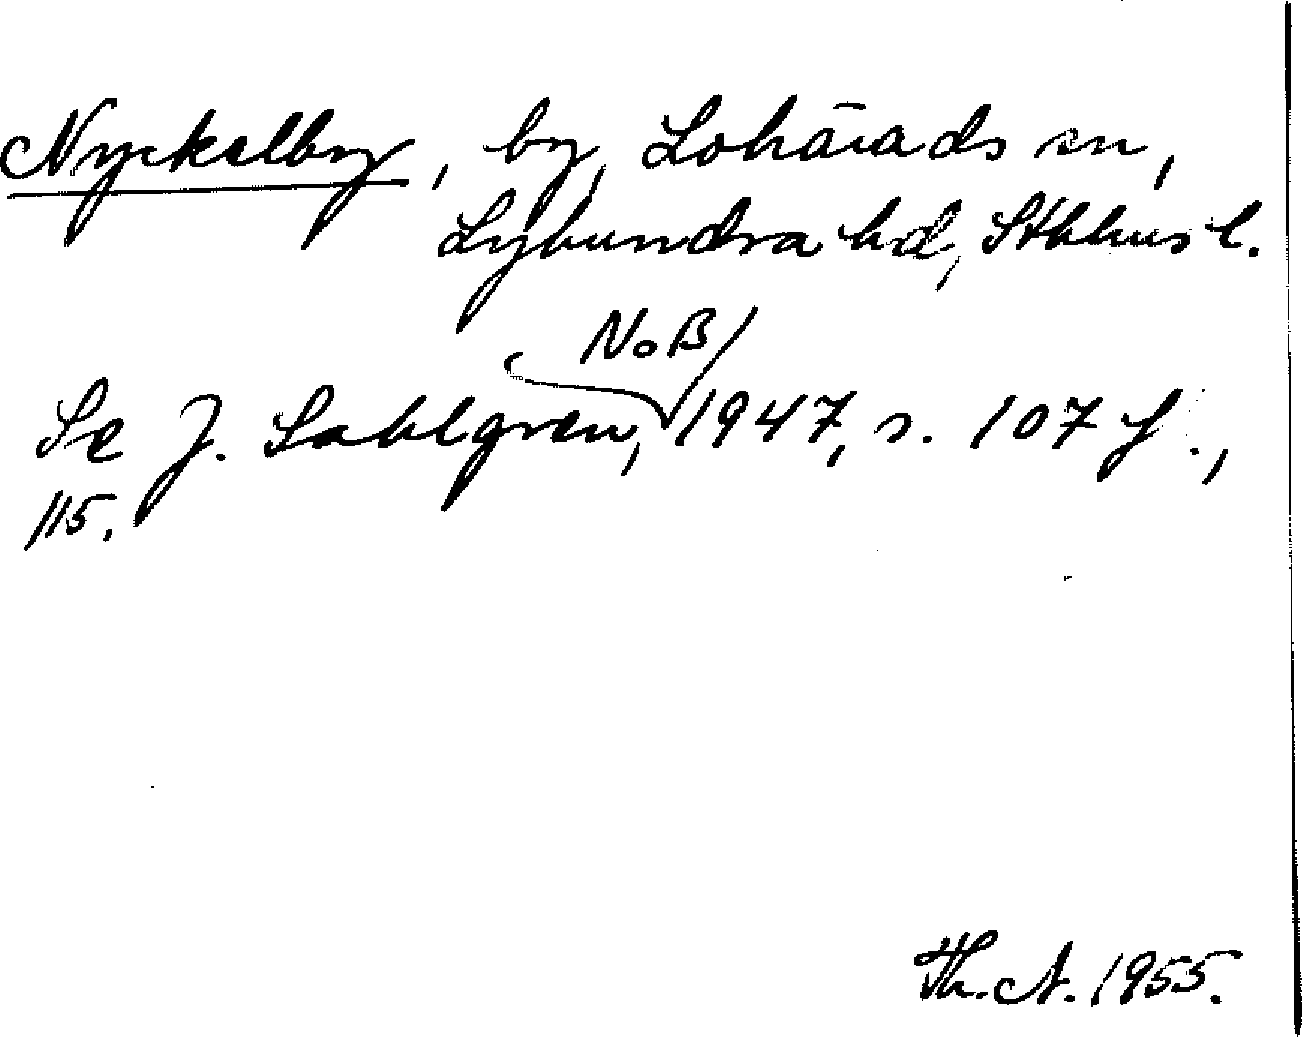 Nyckelby, by, Lohärads sn,
Lyhundra hd, Sthlms l.
NoB
Se J. Sahlgren, 1947, s. 107 f.,
115.
Th. A. 1955.